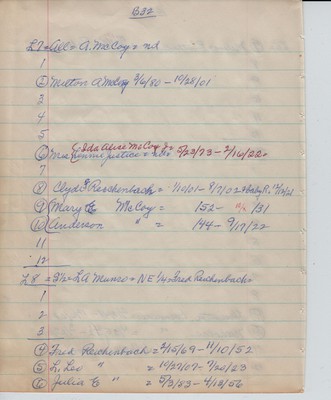 B32
L7 = All = A. McCoy = nd
1
② Milton A McCoy 3/6/80 - 10/28/01
3
4
5
Ida Alice McCoy J=
⑥ Mrs Dennis Justice = nd = 5/23/73 - 2/16/22
7
⑧ Clyde E Reichenbach = 1/10/01 - 8/7/02 + Baby R. 12/13/21
⑨ Mary E McCoy = 152 - 131
⑩ Anderson " = 144 - 9/17/22
11
12
L8 = 3/4 = L A Munro + NE 1/4 = Fred Reichenbach
1
2
3
④ Fred Reichenbach = 2/15/69 - 11/10/52
⑤ " = 10/27/07 - 7/20/23
⑥ Julia E " = 8/3/83 - 4/13/56